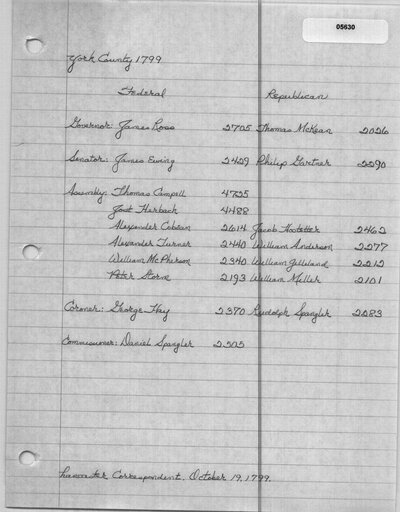 05630
York County 1799
Federal Republican
Governor: James Ross 2705 Thomas McKean 2026
Senator: James Ewing 2429 Philip Gartner 2290
Assembly: Thomas Campell 4725
Yost Harbach 4488
Alexander Cobean 2614 Jacob Hostetter 2462
Alexander Turner 2440 William Anderson 2277
William McPherson 2340 William Gilleland 2212
Peter Storm 2193 William Miller 2101
Coroner: George Hay 2370 Rudolph Spangler 2283
Commissioner: Daniel Spangler 2505
Lancaster Correspondent, October 19, 1799.